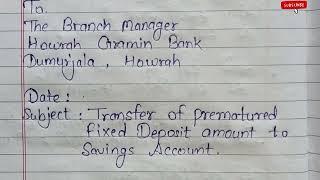 To.
The Branch Manager
Howrah Gramin Bank
Dumurjala, Howrah
Date :
Subject : Transfer of prematured
Fixed Deposit amount to
Savings Account.
SUBSCRIBE